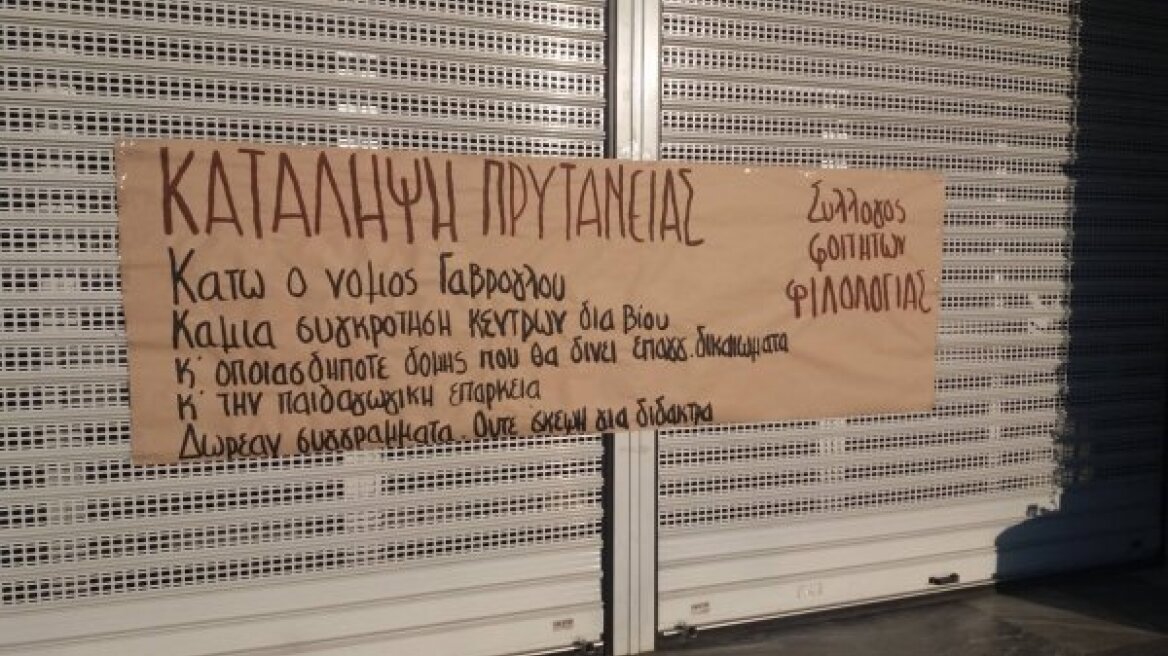 ΚΑΤΑΛΗΨΗ ΠΡΥΤΑΝΕΙΑΣ
Κατω ο νομος Γαβρογλου
Καμια συγκροτηση κεντρων δια βιου
κ' οποιασδηποτε δομης που θα δινει επαγγ. δικαιωματα
κ' την παιδαγωγικη επαρκεια
Δωρεαν συγγραμματα. Ουτε σκεψη για διδακτρα
Συλλογος
φοιτητων
φιλολογιας